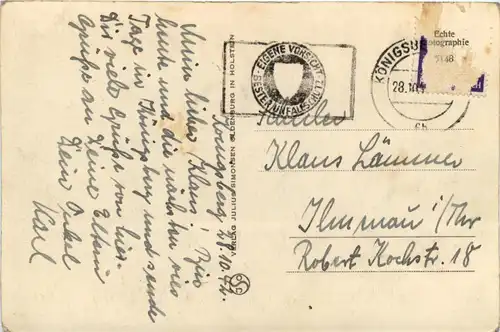 Königsberg, 27.10.42.
Mein lieber Klaus! Bin
heute und die nächsten vier
Tage in Königsberg und sende
Dir viele Grüße von hier.
Grüße an Deine Eltern
Dein Onkel
Karl
VERLAG JULIUS SIMONSEN OLDENBURG IN HOLSTEIN
EIGENE VORSICHT
BESTER UNFALLSCHUTZ
KÖNIGSB
28.10
Echte
Photographie
5148
Klaus Lämmer
Ilmenau i/Thr
Robert Kochstr. 18